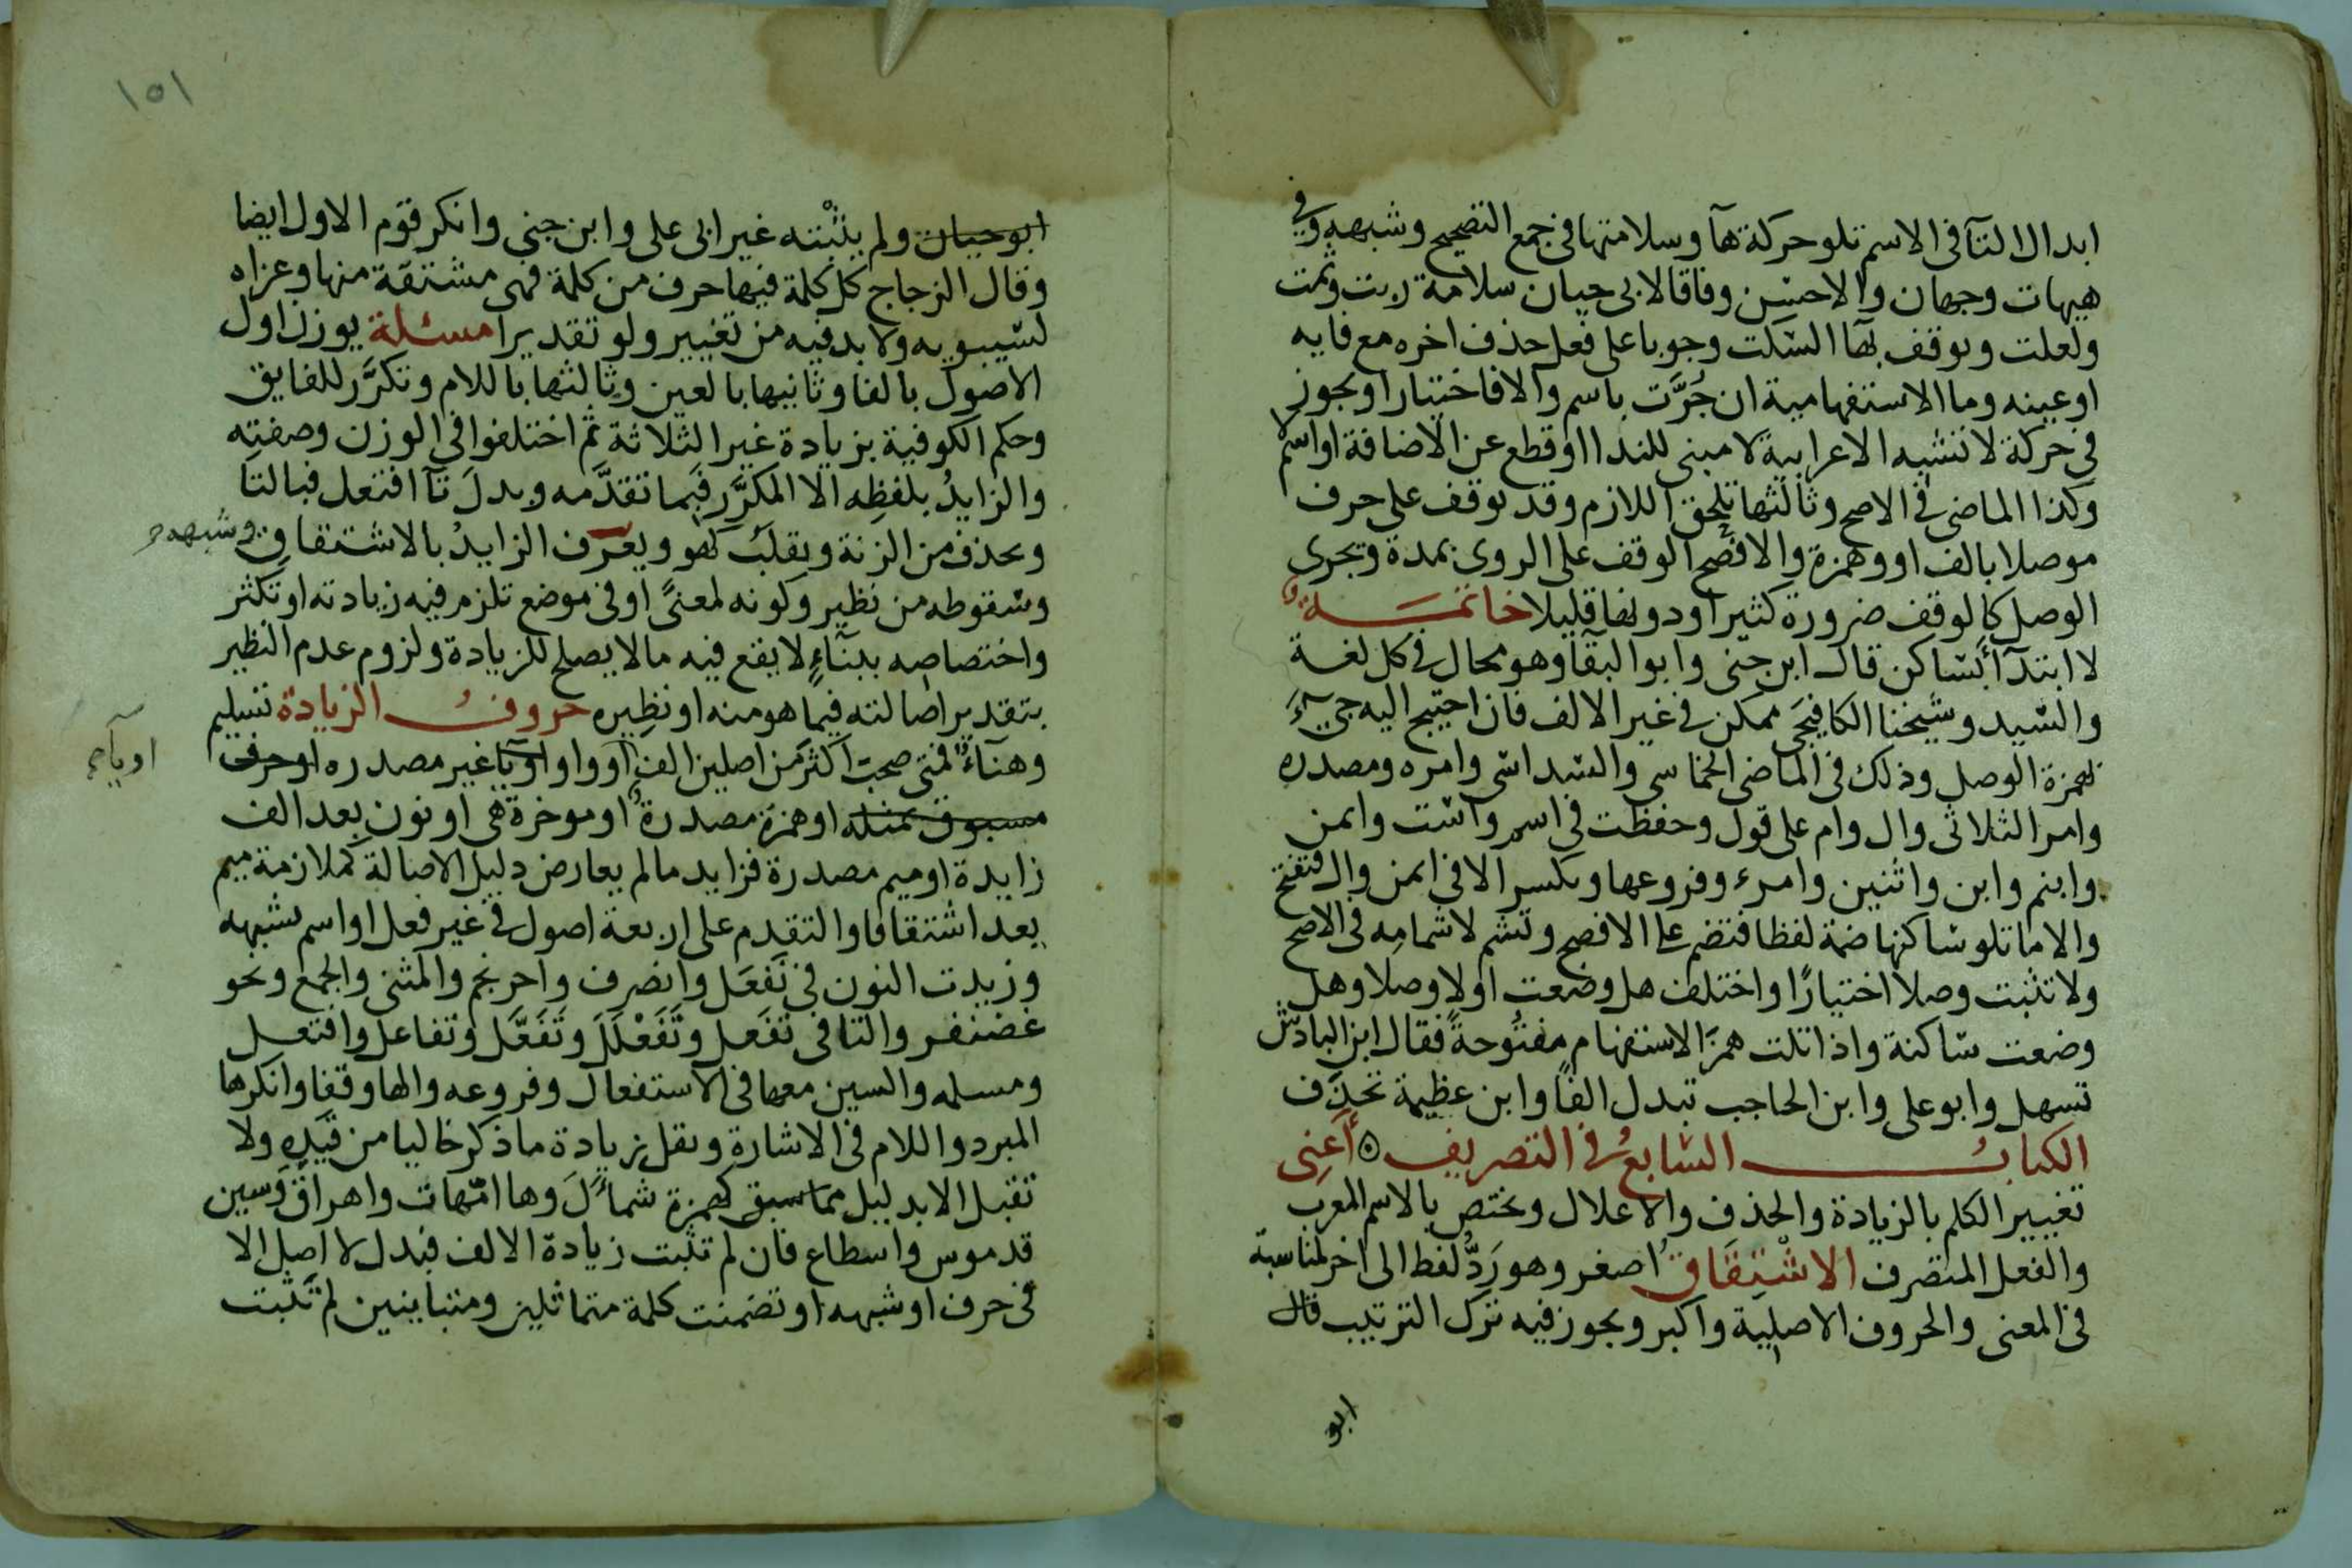 ابدال التآ فى الاسم تلو حركة هآ وسلامتها فى جمع التصحيح وشبهه وفى
هيهات وجهان والاحسن وفاقا لابى حيان سلامة ربت وثمت
ولعلت ويوقف بها السكت وجوبا على فعل حذف اخره مع فايه
او عينه وما الاستفهامية ان جُرَّت باسم والا فاختيارا ويجوز
فى حركة لا تشبه الاعرابية لا مبنى للندا او قطع عن الاضافة او اسم لا
وكذا الماضى فى الاصح وثالثها تلحق اللازم وقد يوقف على حرف
موصلا بالف او وهمزة والافصح الوقف على الروى بمدة ويجرى
الوصل كالوقف ضرورة كثيرا ودونها قليلا خاتمـــة
لا ابتدآ بساكن قال ابن جنى وابو البقآ وهو محال فى كل لغة
والسيد وشيخنا الكافيجى ممكن فى غير الالف فان احتيج اليه جىء
بهمزة الوصل وذلك فى الماضى الخماسى والسداسى وامره ومصدره
وامر الثلاثى وال وام على قول وحفظت فى اسم واست وايمن
وابنم وابن واثنين وامرء وفروعها وتكسر الا فى ايمن وال فتفتح
والا ما تلو ساكنها ضمة لفظا فتضم على الافصح وتشم لاشمامه فى الاصح
ولا تثبت وصلا اختيارًا واختلف هل وضعت اولا وصلا وهل
وضعت ساكنة واذا تلت همز الاستفهام مفتُوحةً فقال ابن الباذش
تسهل وابو على وابن الحاجب تبدل الفًا وابن عظيمة تحذف
الكتابُـــ السابعُ فى التصريف ه أعنِى
تغيير الكلم بالزيادة والحذف والاعلال ويختص بالاسم المعرب
والفعل المتصرف الاشْتِقَاقُ اصغر وهو رَدُّ لفظ الى اخر لمناسبة
فى المعنى والحروف الاصلية واكبر ويجوز فيه ترك الترتيب قال
ابو
١٥١
ابو حيان ولم يثبْته غير ابى على وابن جنى وانكر قوم الاول ايضا
وقال الزجاج كل كلمة فيها حرف من كلمة فهى مشتقة منها وعزاه
لسيبويه ولا بد فيه من تغيير ولو تقديرا مسئلة يوزن اول
الاصول بالفا وثانيها بالعين وثالثها باللام وتكرَّر للفايق
وحكم الكوفية بزيادة غير الثلاثة ثم اختلفوا فى الوزن وصفتِه
والزايدُ بلفظِه الا المكرَّر فبما تقدَّمه وبدلَ تآ افتعل فبالتا
ويحذف من الزنة ويقلب كهو ويعرف الزايدُ بالاشتقاق وشبهه
وسقوطه من نظير وكونه لمعنًى او فى موضع تلزم فيه زيادته او تكثر
واختصاصه ببنآءٍ لا يقع فيه ما لا يصلح للزيادة ولزوم عدم النظير
بتقدير اصالته فيما هو منه او نظِيره حروفُ الزيادة تسليم
وهنآءٌ فمتى صحبت اكثر من اصلين الف او واو او يا غير مصدره او حرف
او يآء
مسبوق بمثله او همزة مصدرة او موخرة هى او نون بعد الف
زايدة او ميم مصدرة فزايد ما لم يعارض دليل الاصالة كملازمة ميم
يعد اشتقاقا والتقدم على اربعة اصول فى غير فعل او اسم يشبهه
وزيدت النون فى نَفعَل وانصرف واحرنجم والمثنى والجمع ونحو
غضنفر والتا فى تَفعل وتَفَعْلَلَ وتَفَعَّل وتفاعل وافتعل
ومسلمه والسين معها فى الاستفعال وفروعه والها وقفا وانكرها
المبرد واللام فى الاشارة ونقل زيادة ما ذكر خاليا من قيَدِه ولا
تقبل الا بدليل مما سبق كهمزة شمأل وها امّهات واهراق وسين
قدموس واسطاع فان لم تثبت زيادة الالف فبدل لا اصل الا
فى حرف او شبهه او تضمنت كلمة متماثلين ومتباينين لم تثبت